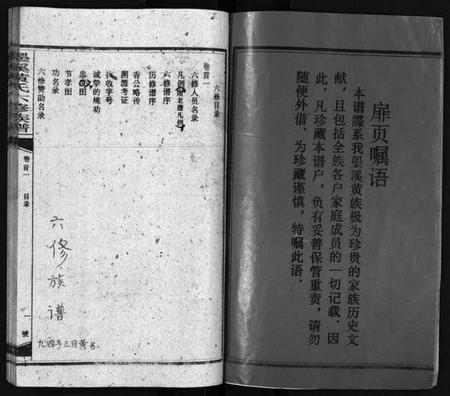 扉页嘱语
本谱牒系我墨溪黄族极为珍贵的家族历史文
献，且包括全族各户家庭成员的一切记载．因
此，凡珍藏本谱户，负有妥善保管重责，请勿
随便外借．为珍藏谨慎，特嘱此语．
六修目录
卷首一
六修人员名录
凡例
六修谱序
历修谱序
香公略传
溯源考证
忠孝图
节孝图
功名录
六修赞助名录
墨溪黄氏六修族谱
卷首一 目录
一
六修族谱
九四年三月黄书